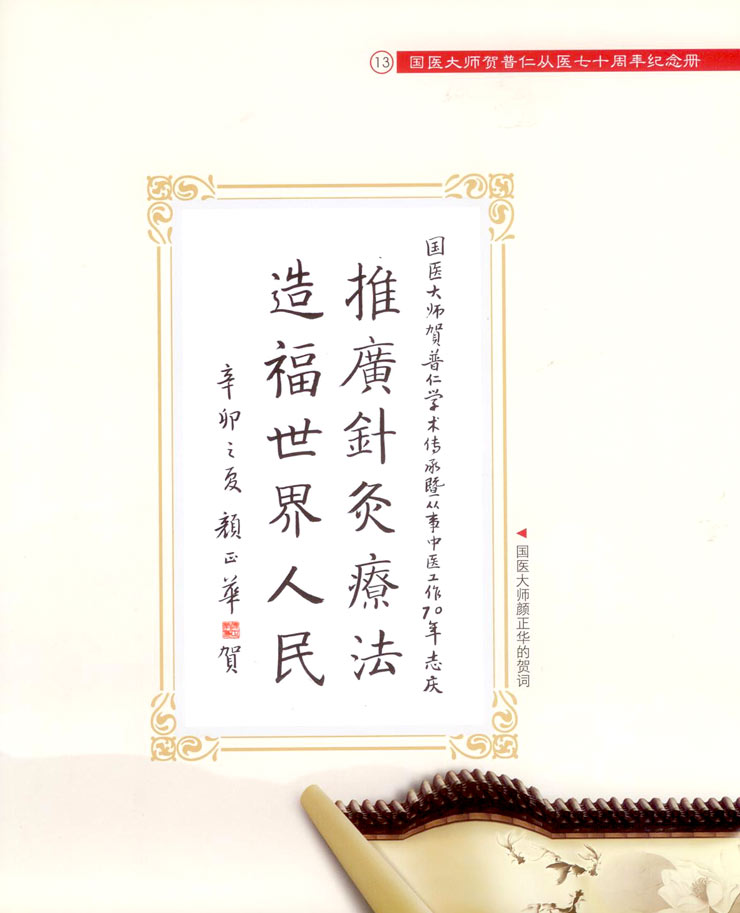 13 国医大师贺普仁从医七十周年纪念册
国医大师賀普仁学术传承暨从事中医工作70年志庆
推廣針灸療法
造福世界人民
辛卯之夏 顏正華 賀
◀国医大师颜正华的贺词